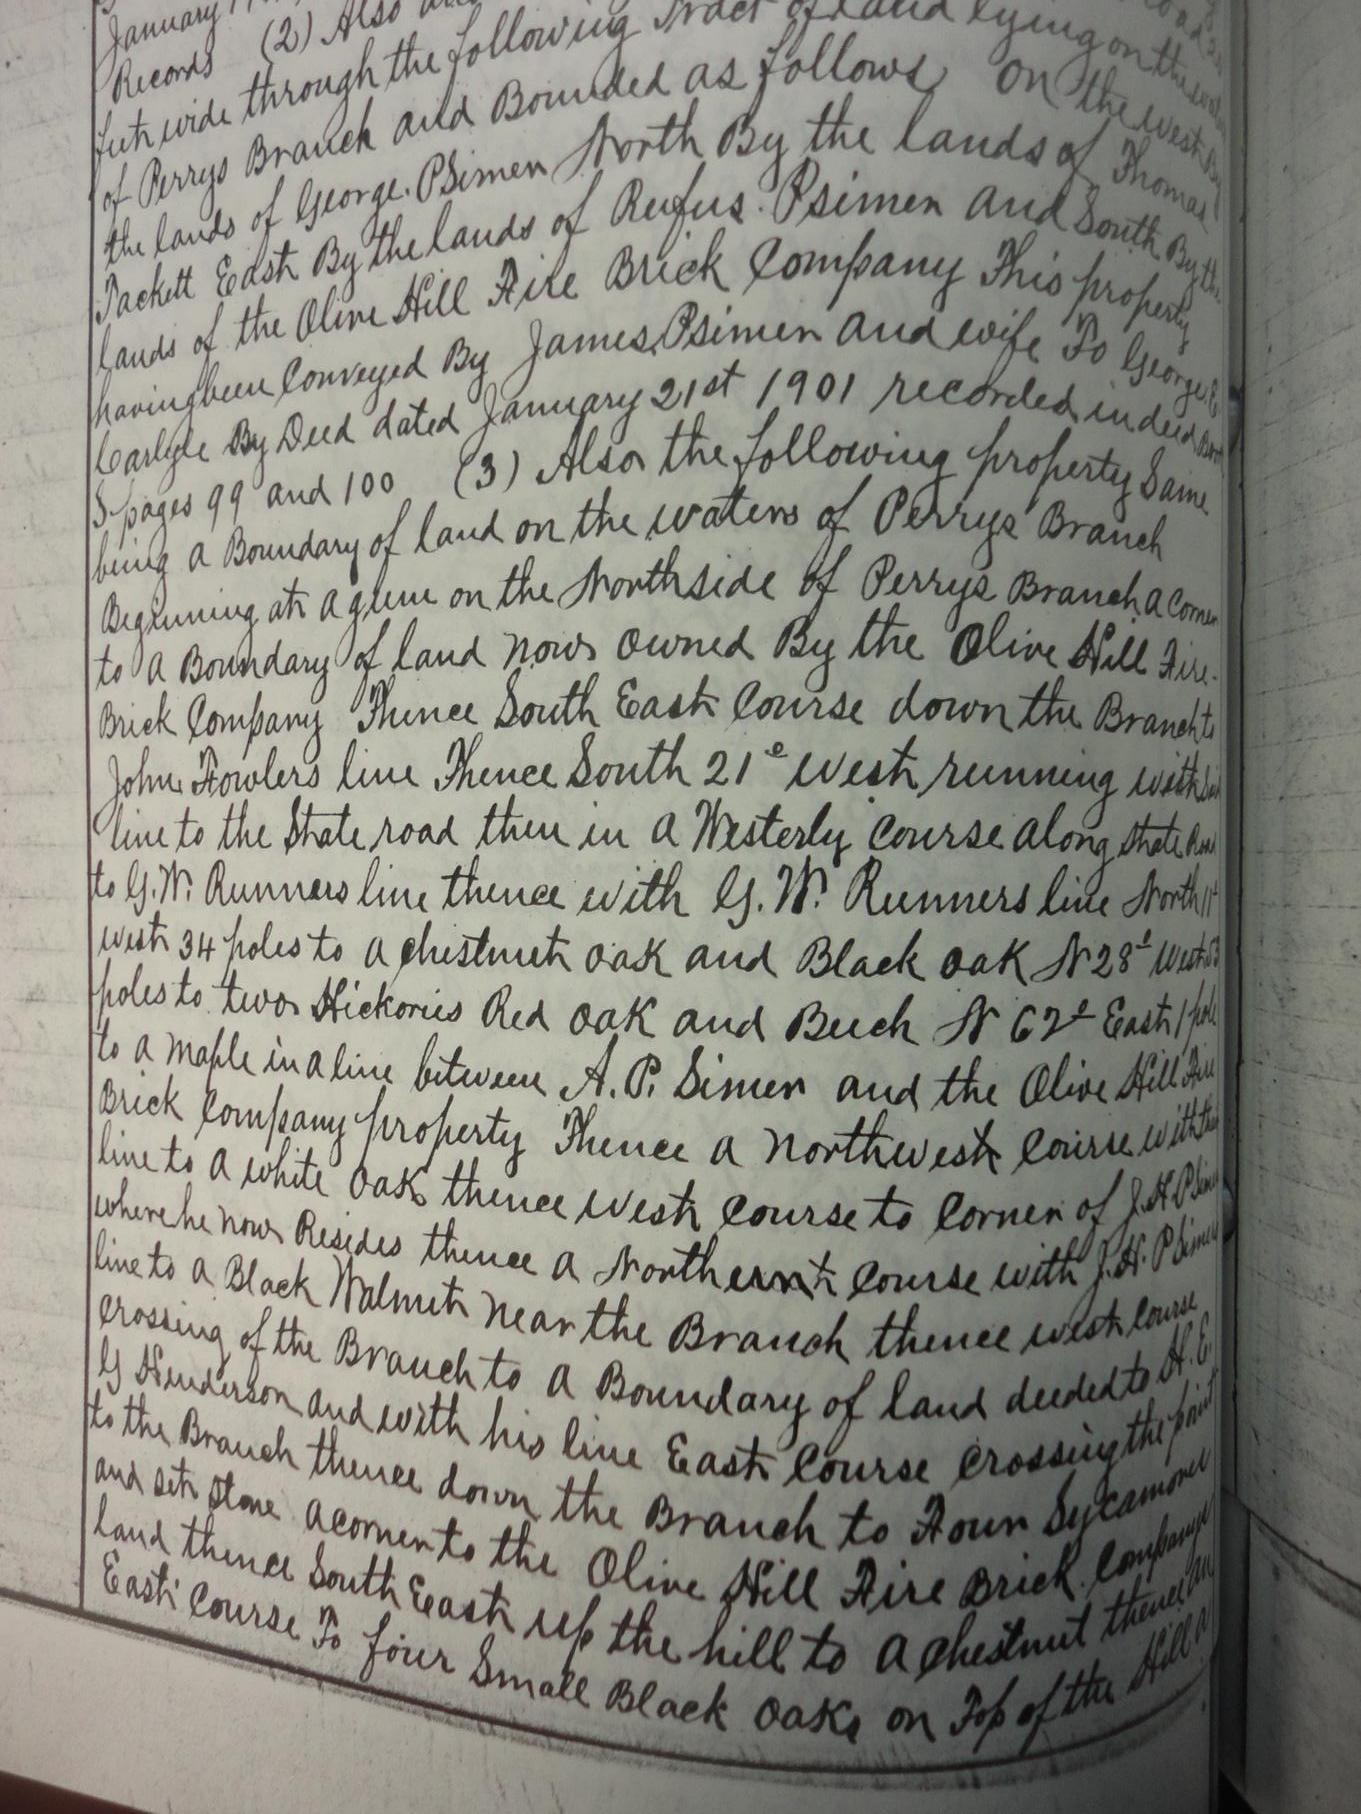 January
Records (2) Also
feet wide through the following Tract of land lying on the
of Perrys Branch and Bounded as follows, on the west By
the lands of George. PSimen North By the lands of Thomas
Tackett East By the lands of Rufus. Psimen and South By the
lands of the Olive Hill Fire Brick Company This property
having been Conveyed By James. Psimen and wife To George E
Carlyle By Deed dated January 21st 1901 recorded in deed Book
S pages 99 and 100 (3) Also the following property Same
being a Boundary of land on the waters of Perrys Branch
Beginning at a gum on the North side of Perrys Branch a corner
to a Boundary of land now owned By the Olive Hill Fire-
Brick Company Thence South East Course down the Branch to
John Fowlers line Thence South 21e west running with Said
line to the State road then in a Westerly Course along State Road
to G. W. Runners line thence with G. W. Runners line North
west 34 poles to a chestnut oak and Black oak N 28e West
poles to two Hickories Red oak and Beech N 62e East 1 pole
to a maple in a line between A. P. Simen and the Olive Hill Fire
Brick Company property Thence a northwest Course with
line to a white oak thence west Course to Corner of J. H. PSimen
where he now Resides thence a Northernt Course with J. H. PSimen
line to a Black Walnut near the Branch thence west Course
Crossing of the Branch to a Boundary of land deeded to H. E.
G Henderson and with his line East Course Crossing the point
to the Branch thence down the Branch to Four Sycamores
and set stone a corner to the Olive Hill Fire Brick Companys
land thence South East up the hill to a chestnut thence an
East Course To four Small Black Oaks on Top of the Hill a